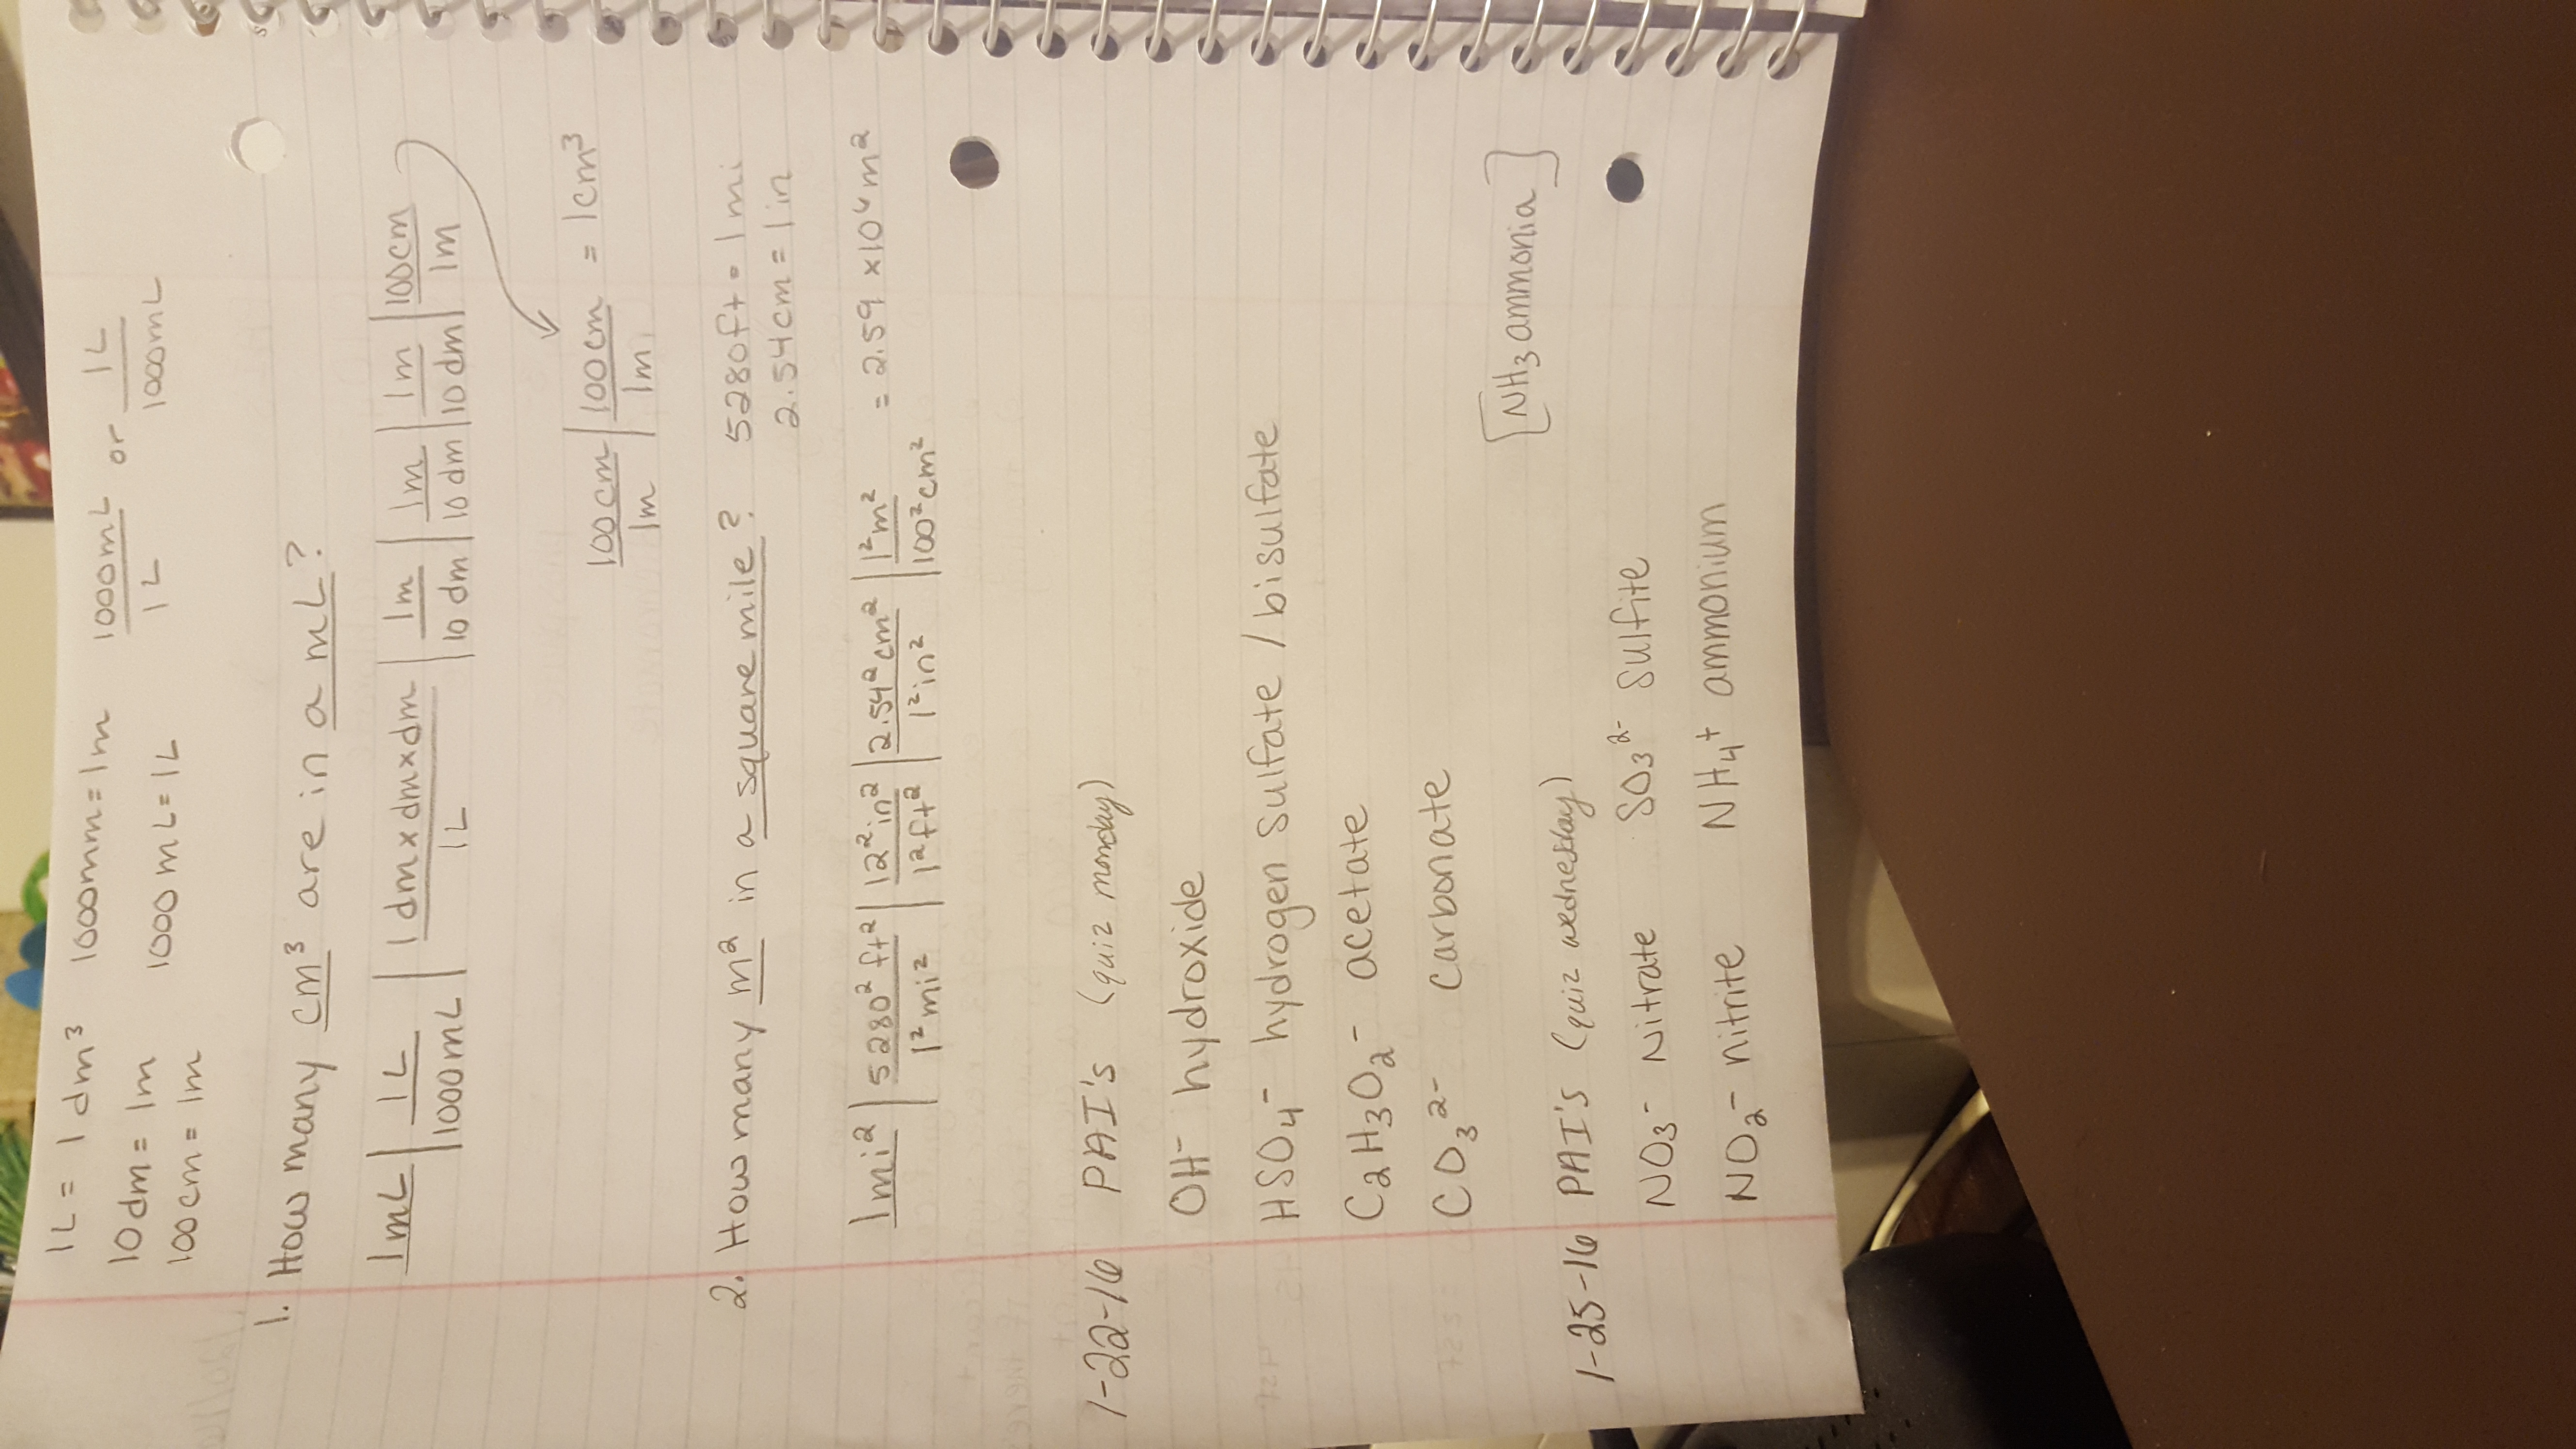 1L = 1 dm³ 1000mm = 1m 1000mL/1L or 1L/1000mL
10dm = 1m 1000mL = 1L
100cm = 1m
1. How many cm³ are in a mL?
1mL | 1L/1000mL | 1dm x dm x dm/1L | 1m/10dm | 1m/10dm | 1m/10dm | 100cm/1m
100cm/1m | 100cm/1m = 1cm³
2. How many m² in a square mile? 5280ft = 1mi
2.54cm = 1in
1mi² | 5280² ft²/1² mi² | 12² in²/1² ft² | 2.54² cm²/1² in² | 1² m²/100² cm² = 2.59 x10⁶ m²
1-22-16 PAI's (quiz monday)
OH⁻ hydroxide
HSO₄⁻ hydrogen sulfate / bisulfate
C₂H₃O₂⁻ acetate
CO₃²⁻ carbonate
[NH₃ ammonia]
1-25-16 PAI's (quiz wednesday)
NO₃⁻ Nitrate SO₃²⁻ sulfite
NO₂⁻ nitrite NH₄⁺ ammonium